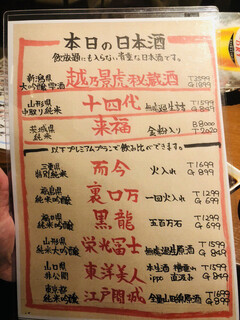 本日の日本酒
飲放題にも入らない貴重な日本酒です。
新潟県 大吟醸雫酒 越乃景虎秘蔵酒 T2599 G1399
山形県 中取り純米 十四代 無濾過生詰 T1599 G849
茨城県 純米 来福 金粉入り B8000 T2020
以下プレミアムプランで飲み比べできます。
三重県 特別純米 而今 火入れ T1699 G899
福島県 純米吟醸 裏ロ万 一回火入れ T1299 G699
黒龍 五百万石 T1299 G699
山形県 純米大吟醸 栄光冨士 無濾過生原酒 T1599 G849
山口県 非公開 東洋美人 ippo 直汲み T1599 G849
東京都 純米吟醸 江戸開城 全量山田錦原酒